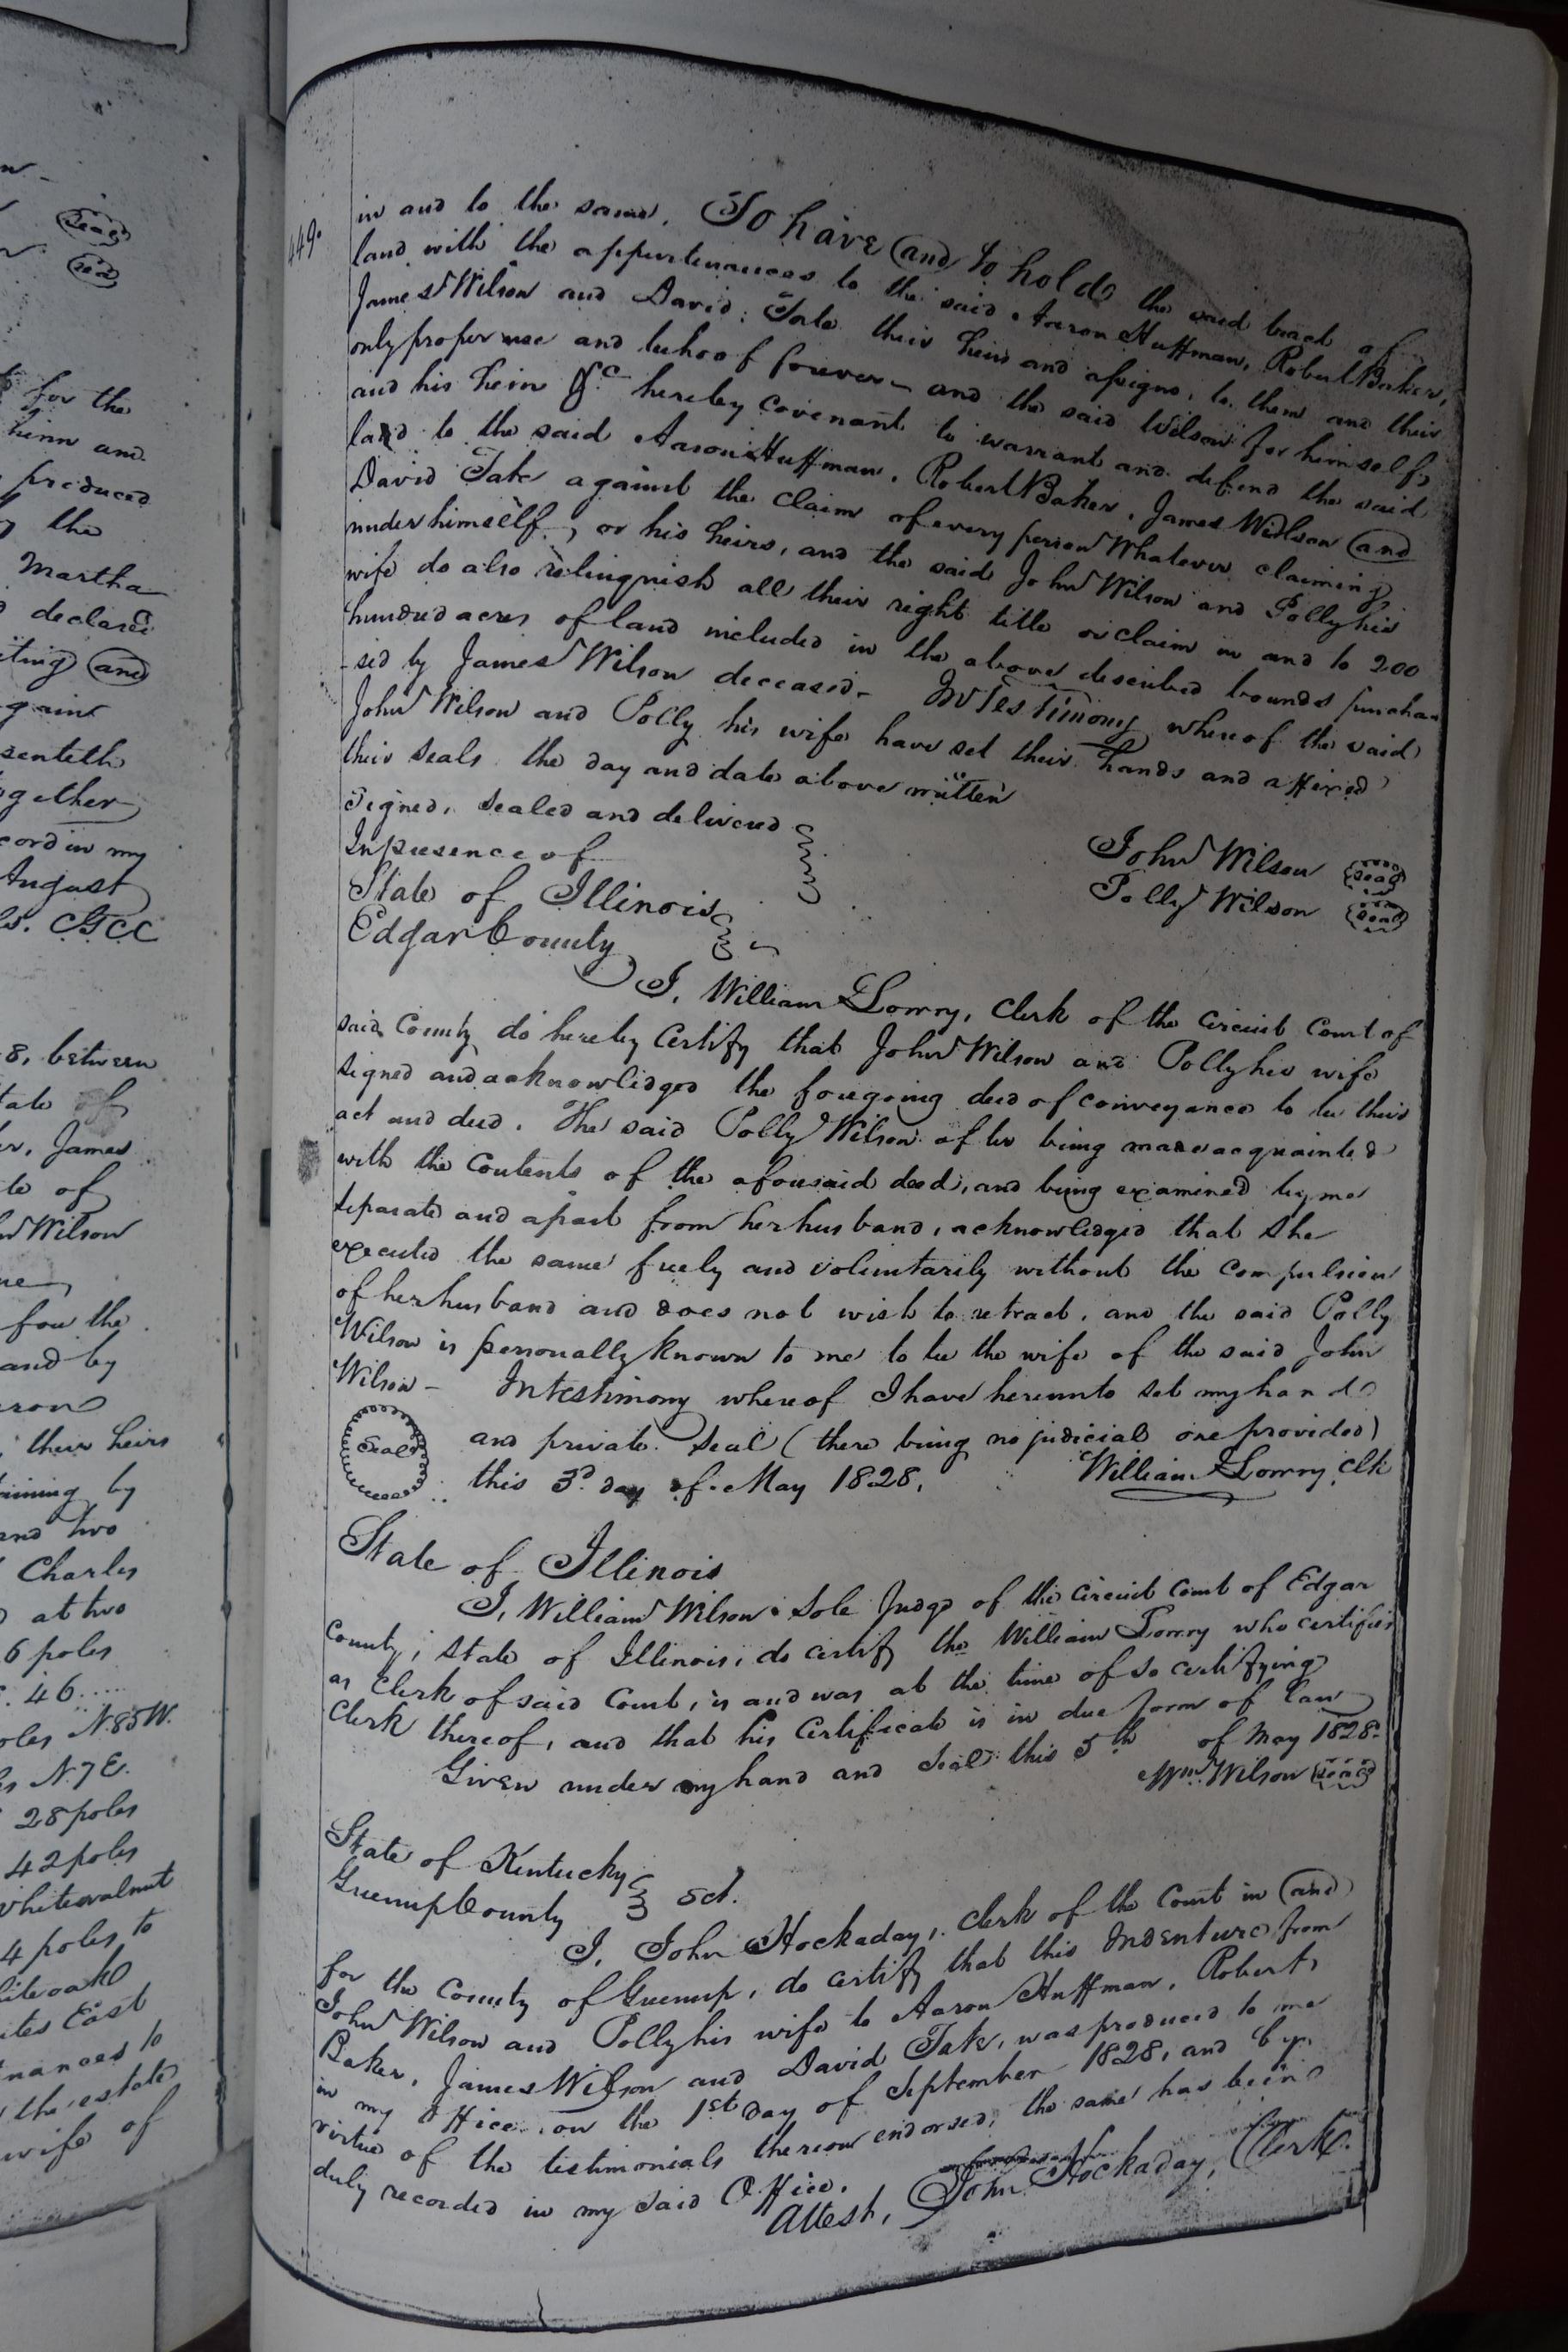 (Seal)
(Seal)
for the
hinn and
produced
the
Martha
declared
and
gain
senteth
gether
cord in my
August
GCC
8, between
tate of
er, James
te of
Wilson
for the
and by
their heirs
by
and two
Charles
at two
6 poles
46
oles N.85W.
N.7E.
28 poles
42 poles
whitewalnut
4 poles, to
East
nances to
the estate
wife of
449.
in and to the same. To have and to hold the said tract of
land with the appurtenances to the said Aaron Huffman, Robert Baker,
James Wilson and David Tate their heirs and assigns, to them and their
only proper use and behoof forever - and the said Wilson for himself,
and his heirs &c hereby covenant to warrant and defend the said
land to the said Aaron Huffman, Robert Baker, James Wilson and
David Tate against the claim of every person Whatever claiming
under himself, or his heirs, and the said John Wilson and Polly his
wife do also relinquish all their right title or claim in and to 200
hundred acres of land included in the above described bounds purcha
-sed by James Wilson deceased - In Testimony whereof the said
John Wilson and Polly his wife have set their hands and affixed
their seals the day and date above written
Signed, Sealed and delivered
In presence of
John Wilson (Seal)
Polly Wilson (Seal)
State of Illinois
Edgar County
I, William Lowry, Clerk of the Circuit Court of
said County do hereby Certify that John Wilson and Polly his wife
signed and acknowledged the foregoing deed of conveyance to be their
act and deed. The said Polly Wilson after being made acquainted
with the Contents of the aforesaid deed, and being examined by me
separate and apart from her husband, acknowledged that she
executed the same freely and voluntarily without the compulsion
of her husband and does not wish to retract, and the said Polly
Wilson is personally known to me to be the wife of the said John
Wilson - In testimony whereof I have hereunto set my hand
(Seal) and private Seal (there being no judicial one provided)
this 3d day of May 1828. William Lowry, Clk
State of Illinois
I, William Wilson Sole Judge of the Circuit Court of Edgar
County, State of Illinois, do certify the William Lowry who certifies
as Clerk of said Court, is and was at the time of so certifying
Clerk thereof, and that his Certificate is in due form of law
Given under my hand and Seal this 5th of May 1828.
Wm Wilson (Seal)
State of Kentucky
Greenup County Sct.
I, John Hockaday, Clerk of the Court in and
for the County of Greenup, do certify that this Indenture from
John Wilson and Polly his wife to Aaron Huffman, Robert
Baker, James Wilson and David Tate, was produced to me
in my Office on the 1st day of September 1828, and by
virtue of the testimonials thereon endorsed, the same has been
duly recorded in my said Office.
Attest, John Hockaday, Clerk.